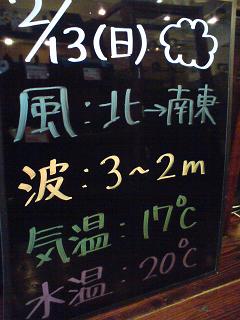 2/13(日)
風:北→南東
波:3~2m
気温:17℃
水温:20℃